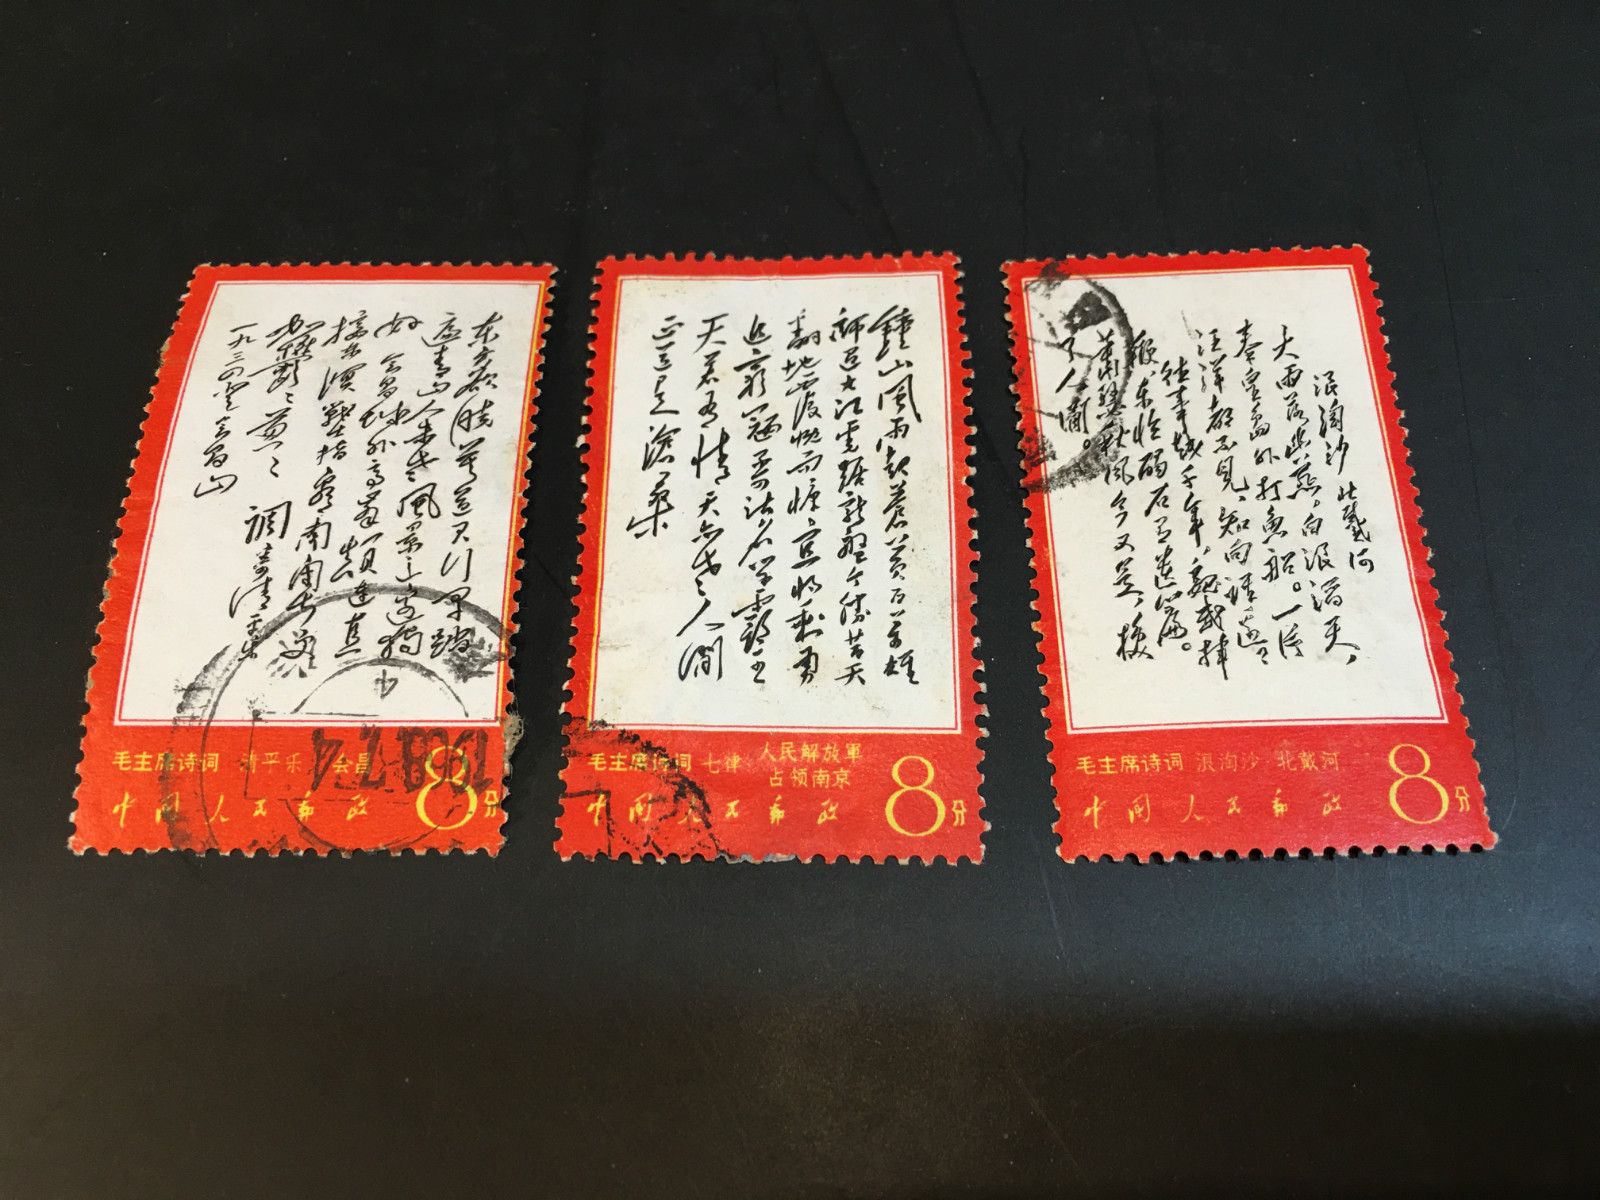 东方欲晓莫道君行早踏
遍青山人未老风景这边独
好会昌城外高峰颠连直
接东溟战士指看南粤更
加郁郁葱葱 调寄清平乐
一九三四登会昌山
毛主席诗词 清平乐 会昌
中国人民邮政 8分
1969.7.4
4
钟山风雨起苍黄百万雄
师过大江虎踞龙盘今胜昔天
翻地覆慨而慷宜将剩勇
追穷寇不可沽名学霸王
天若有情天亦老人间
正道是沧桑
毛主席诗词 七律 人民解放軍
占领南京
中国人民邮政 8分
浪淘沙 北戴河
大雨落幽燕,白浪滔天,
秦皇岛外打鱼船。一片
汪洋都不见,知向谁边?
往事越千年,魏武挥
鞭,东临碣石有遗篇。
萧瑟秋风今又是,换
了人间。
毛主席诗词 浪淘沙 北戴河
中国人民邮政 8分